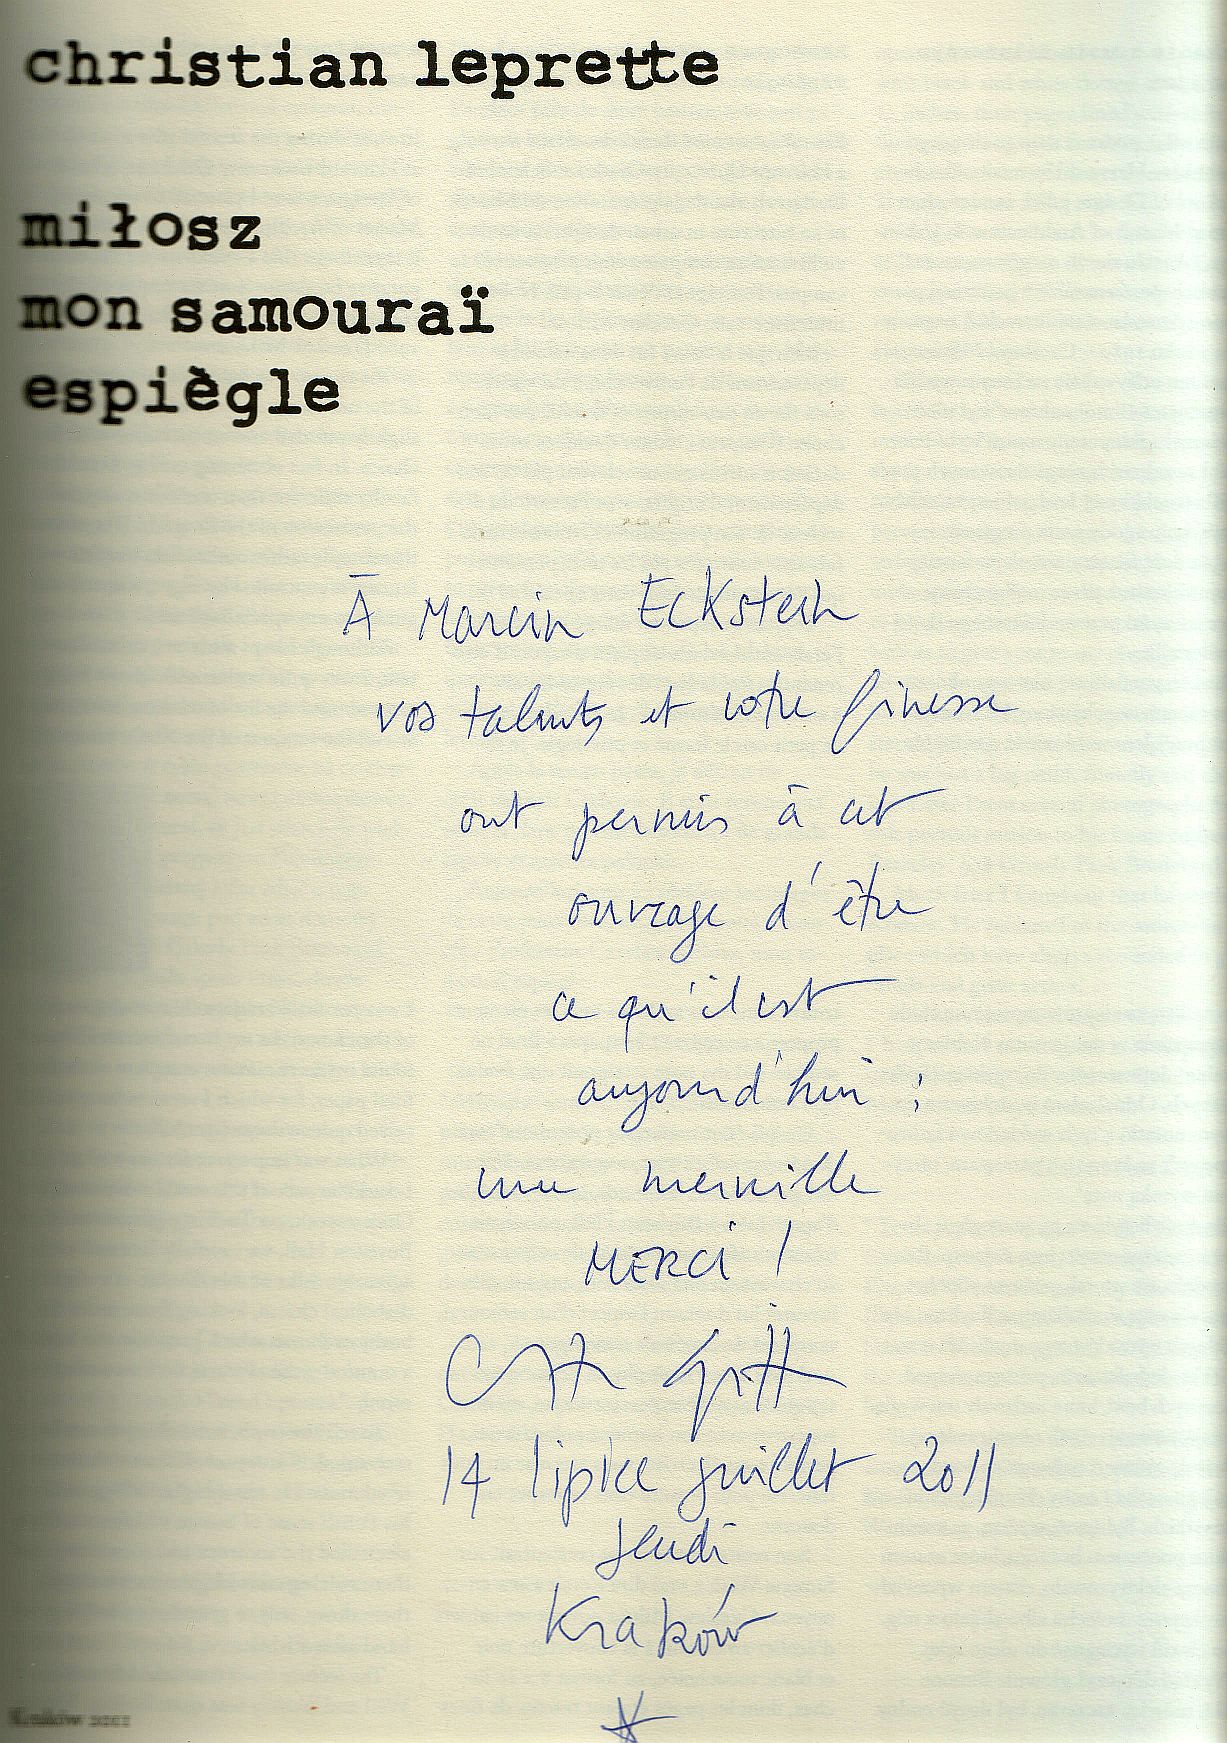 christian leprette
miłosz
mon samouraï
espiègle
À Marcin Eckstein
vos talents et votre finesse
ont permis à cet
ouvrage d'être
ce qu'il est
aujourd'hui :
une merveille
MERCI !
14 lipiec juillet 2011
Jeudi
Kraków
Kraków 2011